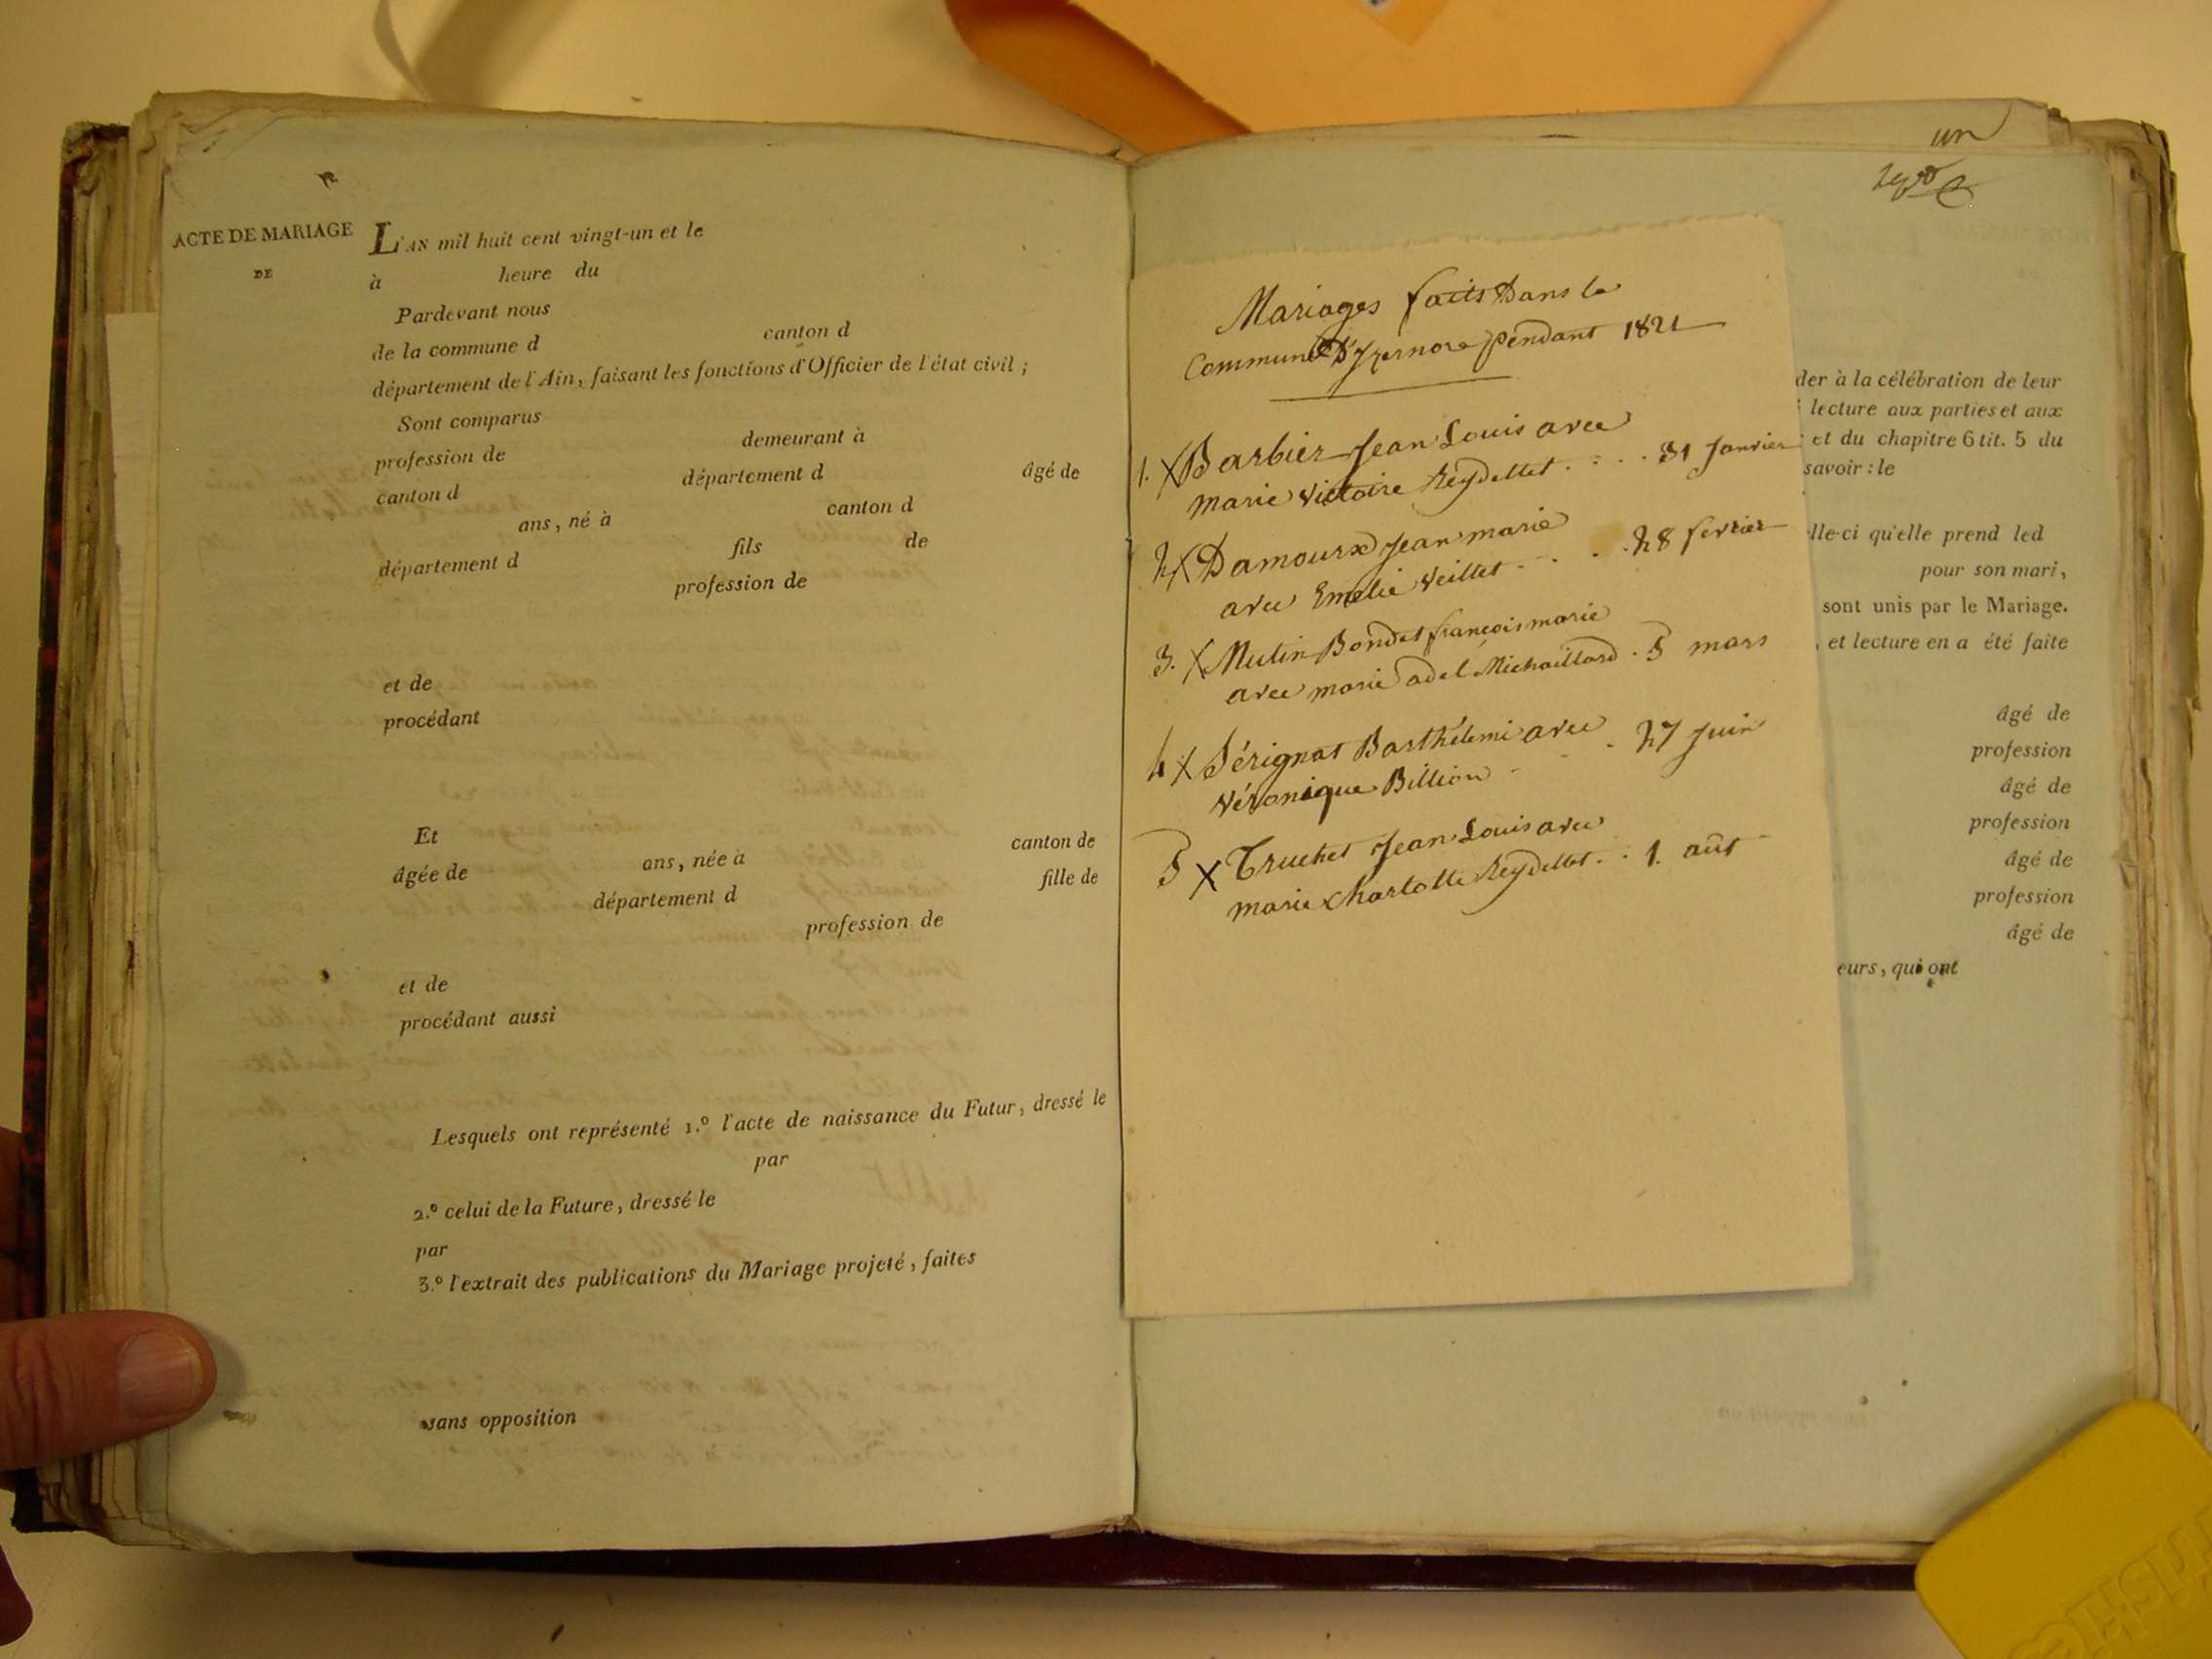 ACTE DE MARIAGE
DE
L'AN mil huit cent vingt-un et le
à heure du
Pardevant nous
de la commune d canton d
département de l'Ain, faisant les fonctions d'Officier de l'état civil ;
Sont comparus
profession de demeurant à
canton d département d âgé de
ans, né à canton d
département d fils de
profession de
et de
procédant
Et canton de
âgée de ans, née à
département d fille de
profession de
et de
procédant aussi
Lesquels ont représenté 1.º l'acte de naissance du Futur, dressé le
par
2.º celui de la Future, dressé le
par
3.º l'extrait des publications du Mariage projeté, faites
sans opposition
un
Mariages faits Dans la
Commune D'Izernore pendant 1821
1. X Barbier Jean Louis avec
marie victoire Reydellet . . . . 31 Janvier
2 X Damoux Jean marie
avec Emelie Veillet . . . 28 fevrier
3. X Mutin Bondet françois marie
avec marie adel Michaillard . 5 mars
4 X Sérignat Barthélemi avec
véronique Billion . . . 27 Juin
5 X Truchet Jean Louis avec
marie charlotte Reydellet . . 1. aût
der à la célébration de leur
lecture aux parties et aux
et du chapitre 6 tit. 5 du
savoir : le
lle-ci qu'elle prend led
pour son mari,
sont unis par le Mariage.
, et lecture en a été faite
âgé de
profession
âgé de
profession
âgé de
profession
âgé de
eurs, qui ont